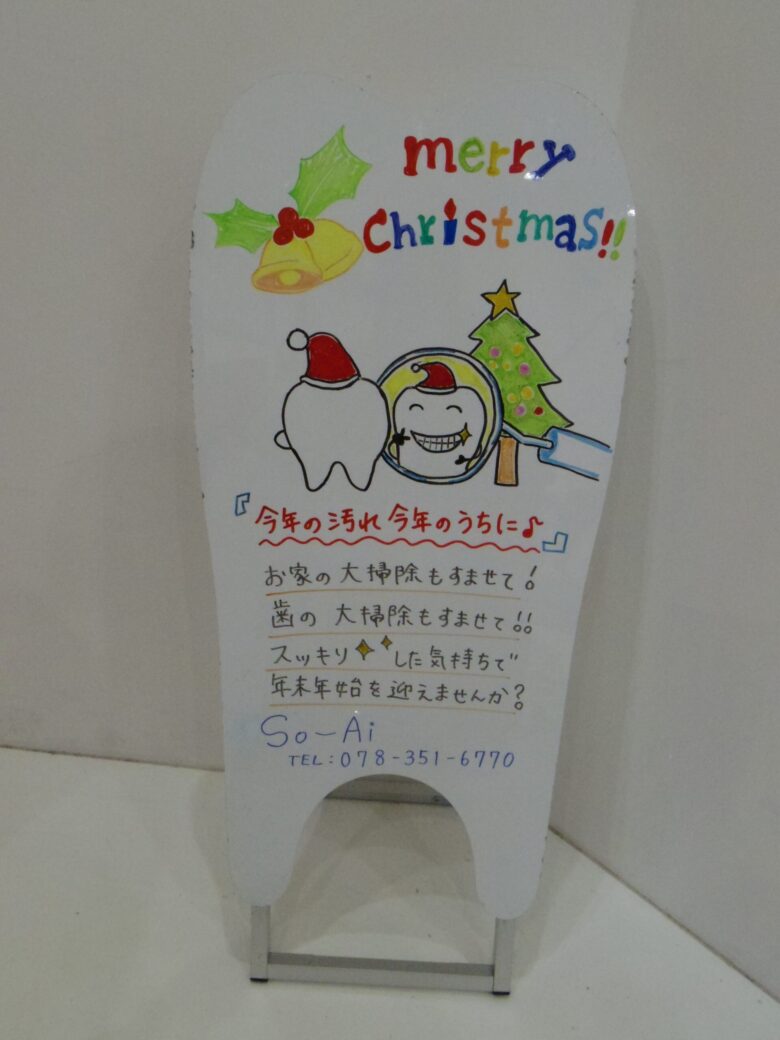 merry
christmas!!
『今年の汚れ 今年のうちに♪』
お家の大掃除もすませて!
歯の大掃除もすませて!!
スッキリした気持ちで
年末年始を迎えませんか?
So-Ai
TEL:078-351-6770